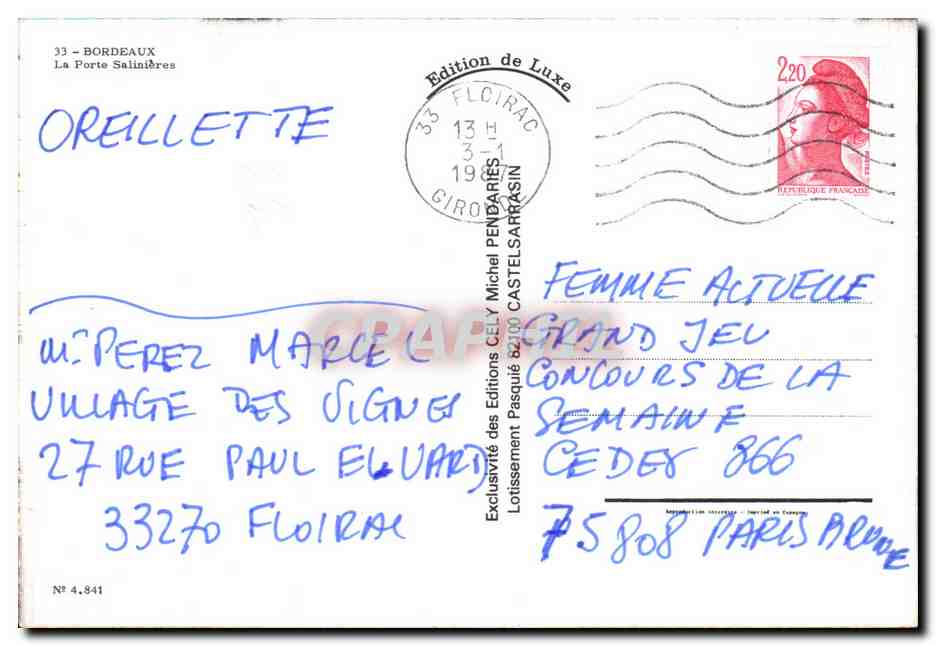 33 - BORDEAUX
La Porte Salinières
Edition de Luxe
33 FLOIRAC
13 H
3-1
1987
GIRONDE
2,20
POSTES
REPUBLIQUE FRANÇAISE
OREILLETTE
Mr PEREZ MARCEL
VILLAGE DES VIGNES
27 RUE PAUL ELUARD
33270 FLOIRAC
Exclusivité des Editions CELY Michel PENDARIES
Lotissement Pasquié 82100 CASTELSARRASIN
FEMME ACTUELLE
GRAND JEU
CONCOURS DE LA
SEMAINE
CEDEX 866
Reproduction interdite - Imprimé en Espagne
75808 PARIS BRUNE
Nº 4.841
CPAPHIL